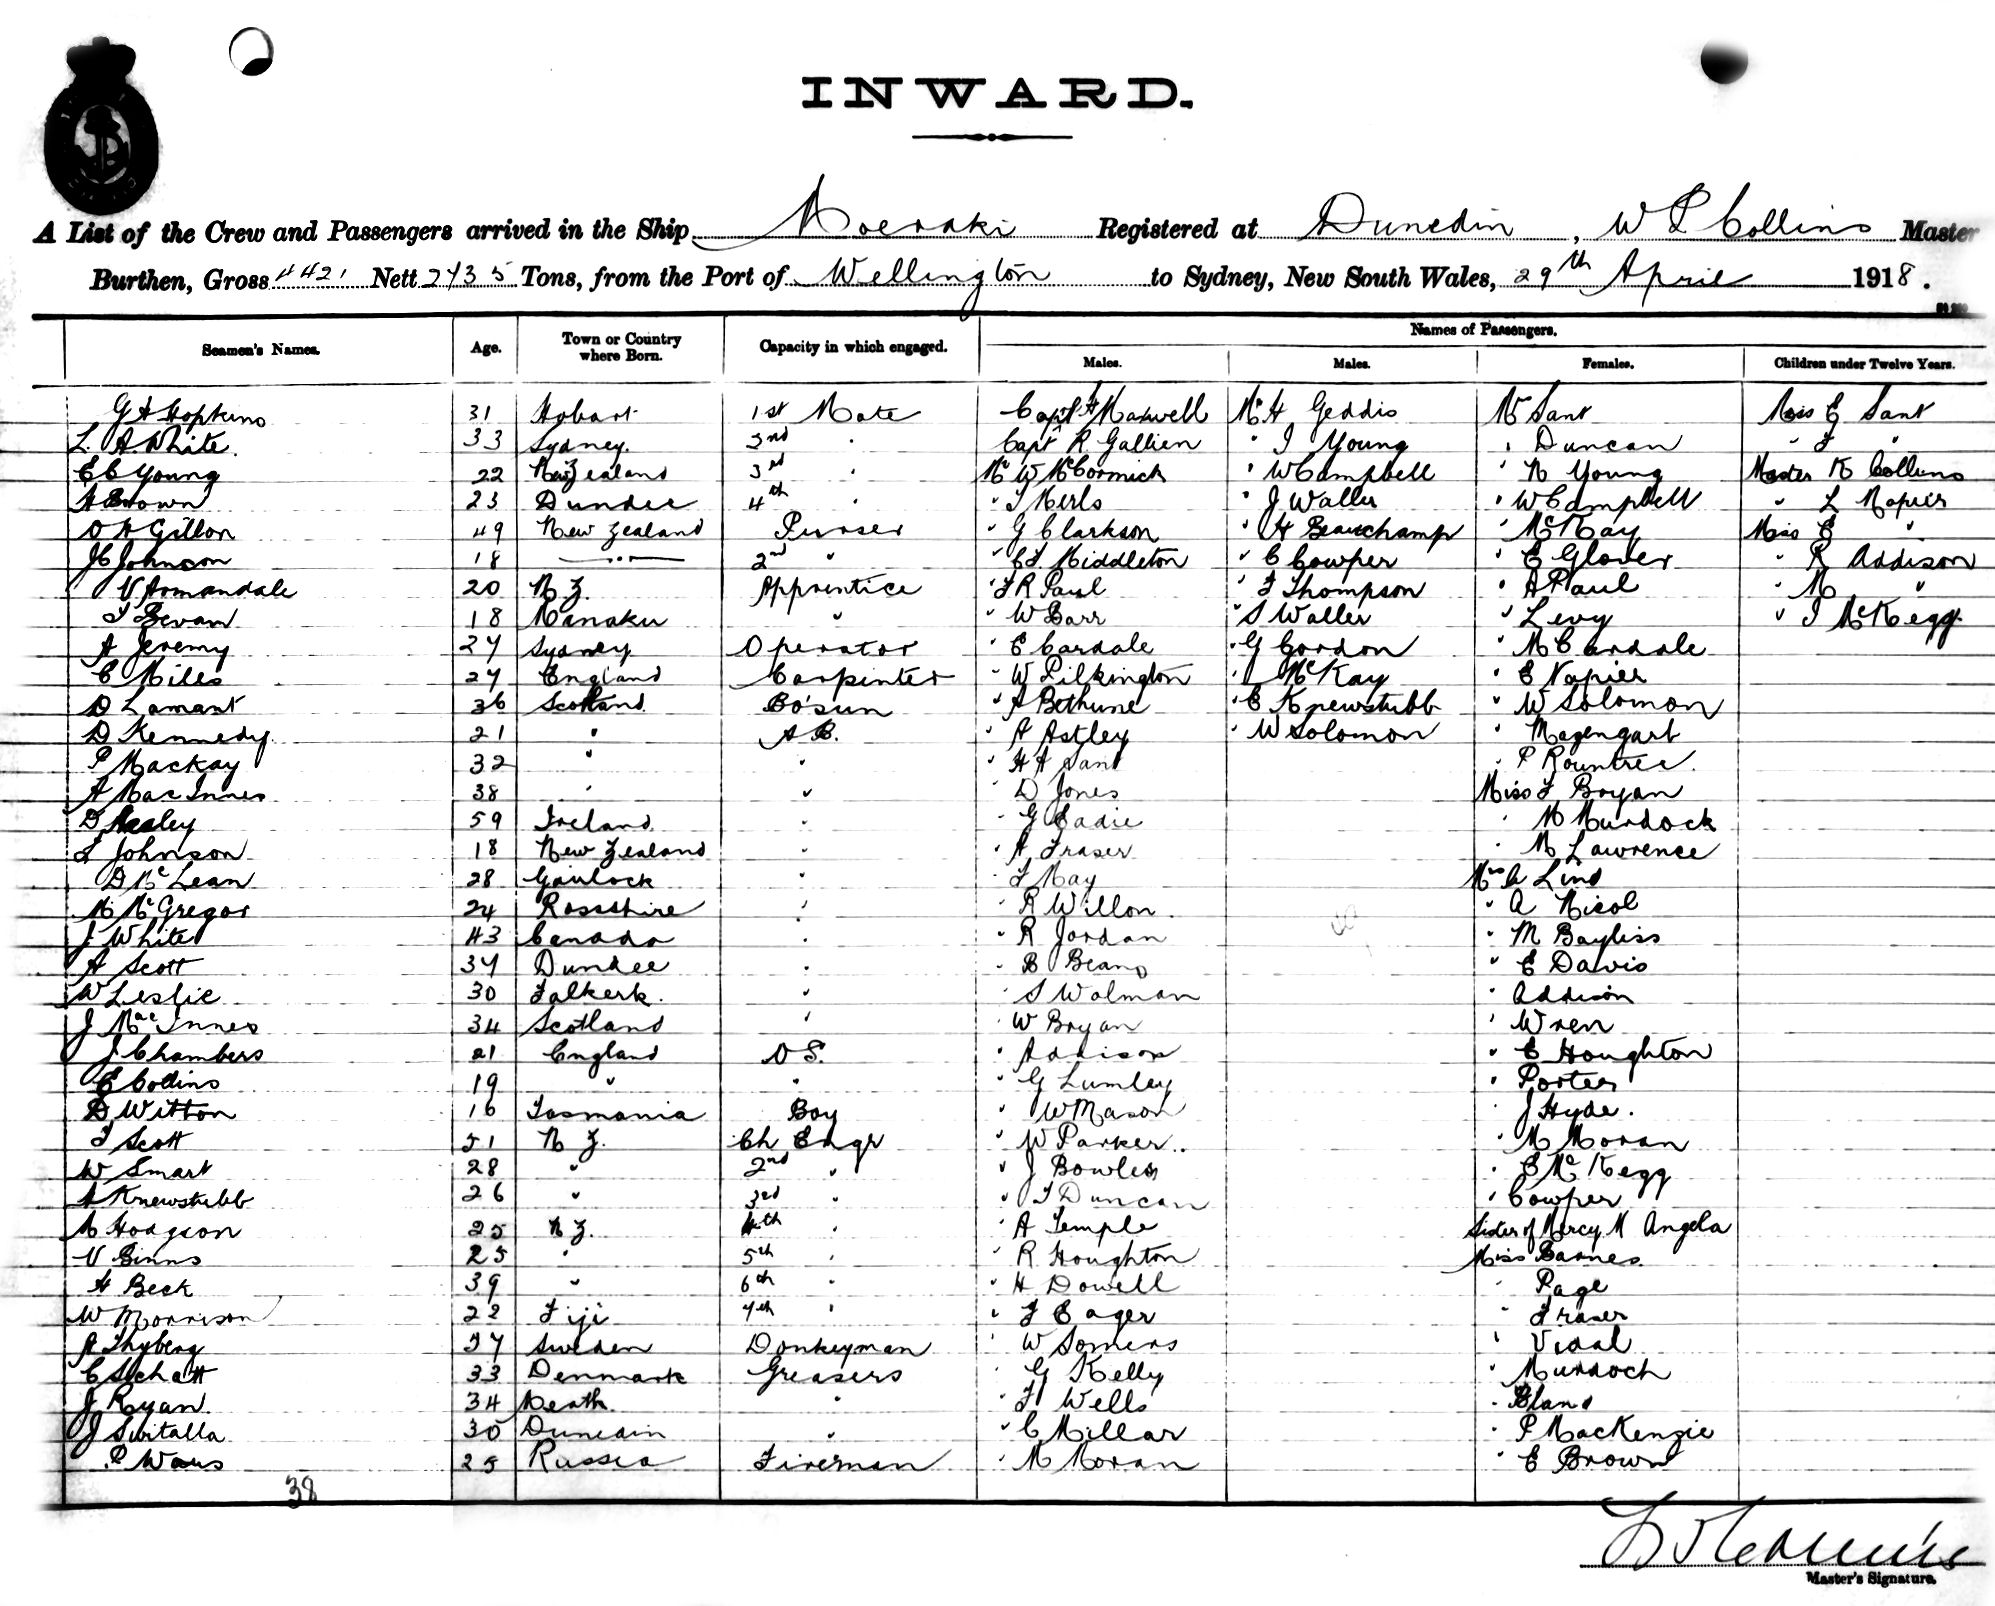 INWARD.
A List of the Crew and Passengers arrived in the Ship Moeraki Registered at Dunedin, W P Collins Master
Burthen, Gross 4421 Nett 2735 Tons, from the Port of Wellington to Sydney, New South Wales, 29th April 1918.
Names of Passengers.
Seamen's Names. Age. Town or Country where Born. Capacity in which engaged. Males. Males. Females. Children under Twelve Years.
G H Hopkins 31 Hobart 1st Mate Capt H Maxwell Mr H Geddis Mrs Sant Miss E Sant
L. A. White. 33 Sydney. 2nd " Capt R Gallien " J Young " Duncan " F "
E C Young 22 New Zealand 3rd " Mr W McCormick " W Campbell " N Young Master K Collins
H Brown 23 Dundee 4th " " T Kerls " J Waller " W Campbell " L Napier
O H Gillon 49 New Zealand Purser " G Clarkson " H Beauchamp " McKay Miss E "
J C Johnson 18 " 2nd " " C F. Middleton " C Cowper " E Glover " R Addison
V Armandale 20 N Z. Apprentice " F R Paul " F Thompson " A Paul " M "
T Bevan 18 Manaku " " W Barr " S Waller " Levy " J McKegg.
A Jeremy 27 Sydney Operator " E Cardale " G Gordon " M Cardale
C Miles 27 England Carpenter " W Pilkington " McKay " E Napier
D Lamant 36 Scotland Bo'sun " A Bethune " C Knewstubb " W Solomon
D Kennedy. 21 " A B. " A Astley " W Solomon " Mazengarb
P Mackay 32 " " " H A Sant " P Rountree.
A MacInnes 38 " " " D Jones Miss F Bryan
D Healey 59 Ireland " " G Eadie " M Murdock
L Johnson 18 New Zealand " " A Fraser " M Lawrence
D McLean 28 Gairlock " " F May Mrs A Lind
M McGregor 24 Rossshire " " R Willon. " A Nicol
J White 43 Canada " " R Jordan " M Bayliss
A Scott 37 Dundee " " B Beano " E Davis
W Leslie 30 Falkerk. " " S Wolman " Addison
J MacInnes 34 Scotland " " W Bryan " Wren
J Chambers 21 England O S. " Addison " E Houghton
E Collins 19 " " " G Lumley " Porter
D Witton 16 Tasmania Boy " W Mason " J Hyde.
T Scott 51 N Z. Ch Engr " W Parker.. " M Moran
W Smart 28 " 2nd " " J Bowles " E McKegg
A Knewstubb 26 " 3rd " " T Duncan " Cowper
A Hodgson 25 N Z. 4th " " A Temple Sister of Mercy M Angela
V Binns 25 " 5th " " R Houghton Miss Barnes
H Beck 39 " 6th " " H Dowell " Page
W Morrison 22 Fiji 7th " " F Eager " Fraser
A Thyberg 37 Sweden Donkeyman " W Somers " Vidal
C Schatt 33 Denmark Greasers " G Kelly " Murdoch
J Ryan. 34 Neath. " " H Wells " Bland
J Switalla 30 Dunedin " " C Millar " P MacKenzie
P Waus 25 Russia Fireman " M Moran " E Brown
38
Master's Signature.